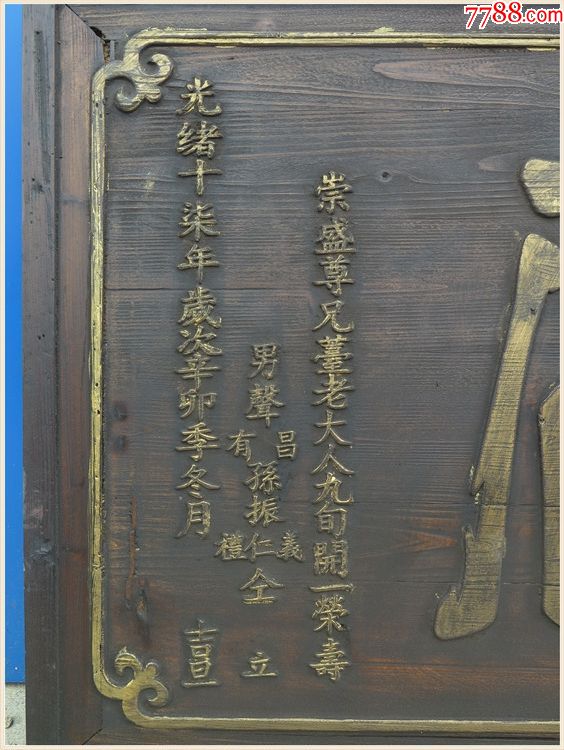 7788.com
崇盛尊兄薹老大人九旬開一榮壽
男聲昌有孫振義仁禮仝立
光緒十柒年歲次辛卯季冬月吉旦